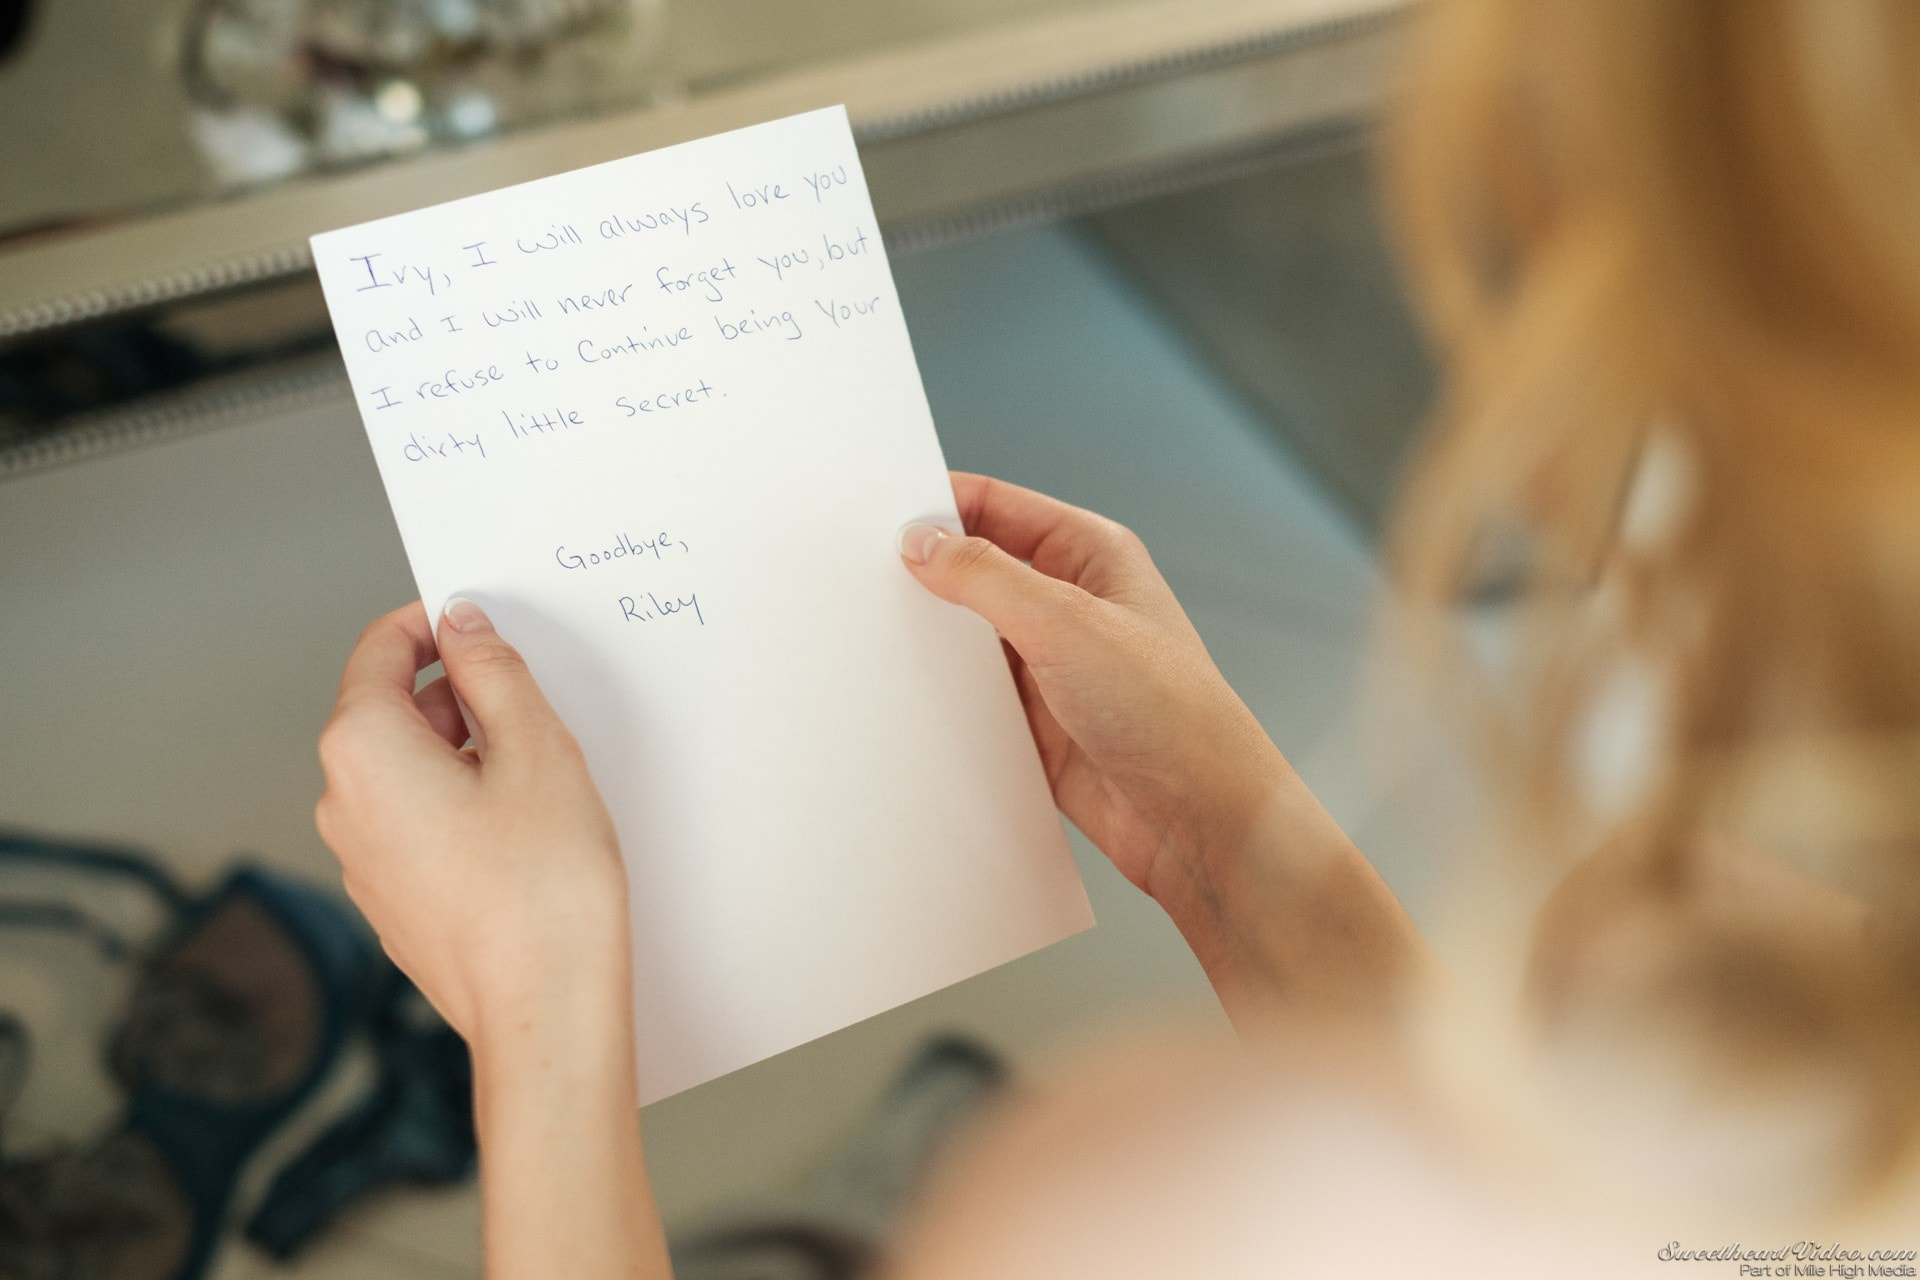 Ivy, I will always love you
and I will never forget you, but
I refuse to Continue being Your
dirty little secret.
Goodbye,
Riley
SweetheartVideo.com
Part of Mile High Media